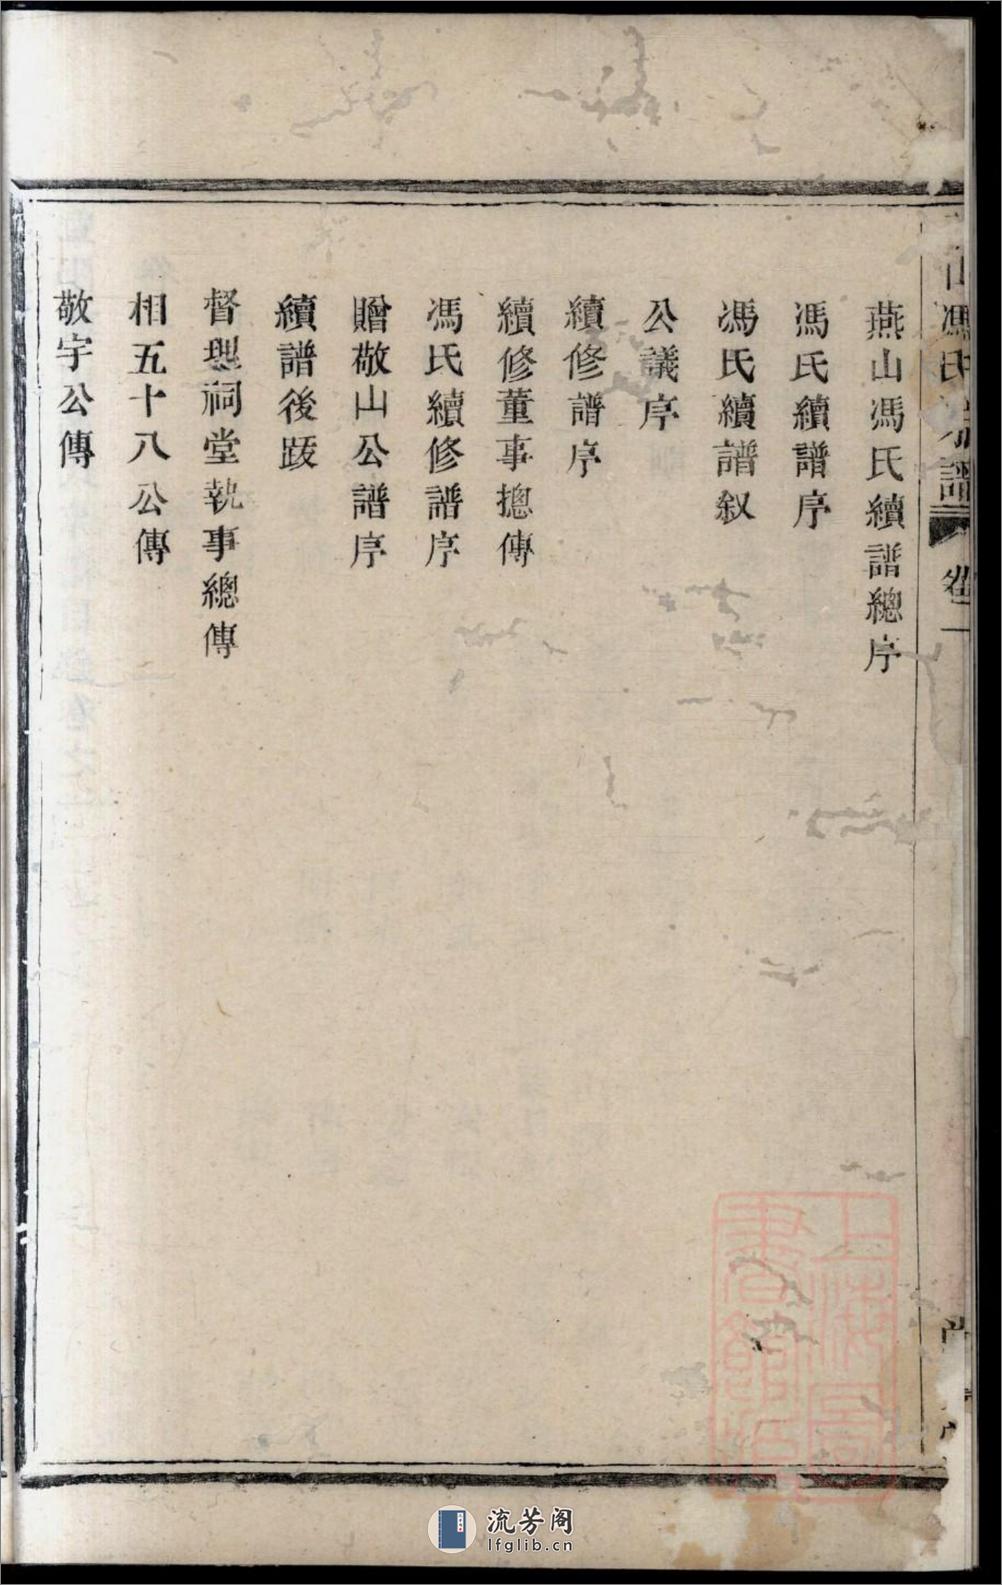 燕山馮氏續譜總序
馮氏續譜序
馮氏續譜叙
公議序
續修譜序
續修董事摠傳
馮氏續修譜序
贈敬山公譜序
續譜後跋
督理祠堂執事總傳
相五十八公傳
敬宇公傳
山馮氏宗譜
卷一
上海圖書館藏
流芳阁
lfglib.cn